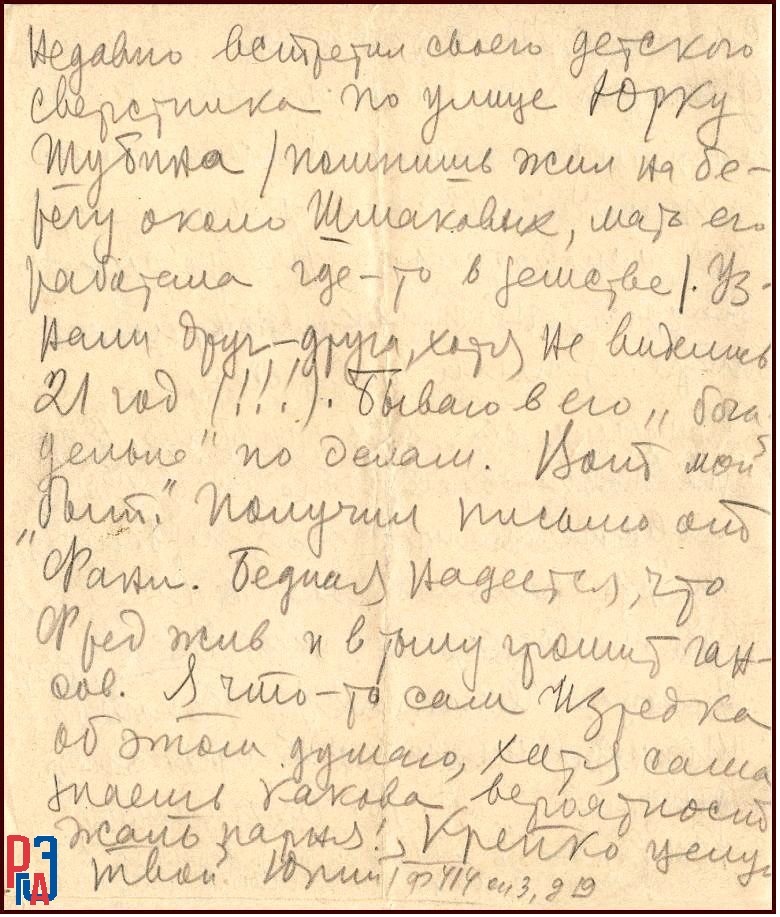 Недавно встретил своего детского
сверстника по улице Юрку
Шубина /помнишь жил на бе-
регу около Шмаковых, мать его
работала где-то в детстве/. Уз-
нали друг-друга, хотя не виделись
21 год (!!!). Бываю в его „бога-
дельне" по делам. Вот мой
быт." Получил письмо от
"Фани. Бедная надеется, что
Фред жив и в тылу громит ган-
сов. Я что-то сам изредка
об этом думаю, хотя сама
знаешь какова вероятность
Жаль парня! Крепко целую
Твой Юрий ф 414 оп 3, д 19
РГАЭ